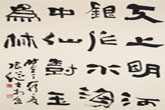 天上明河
銀作水海
中仙樹玉
為林